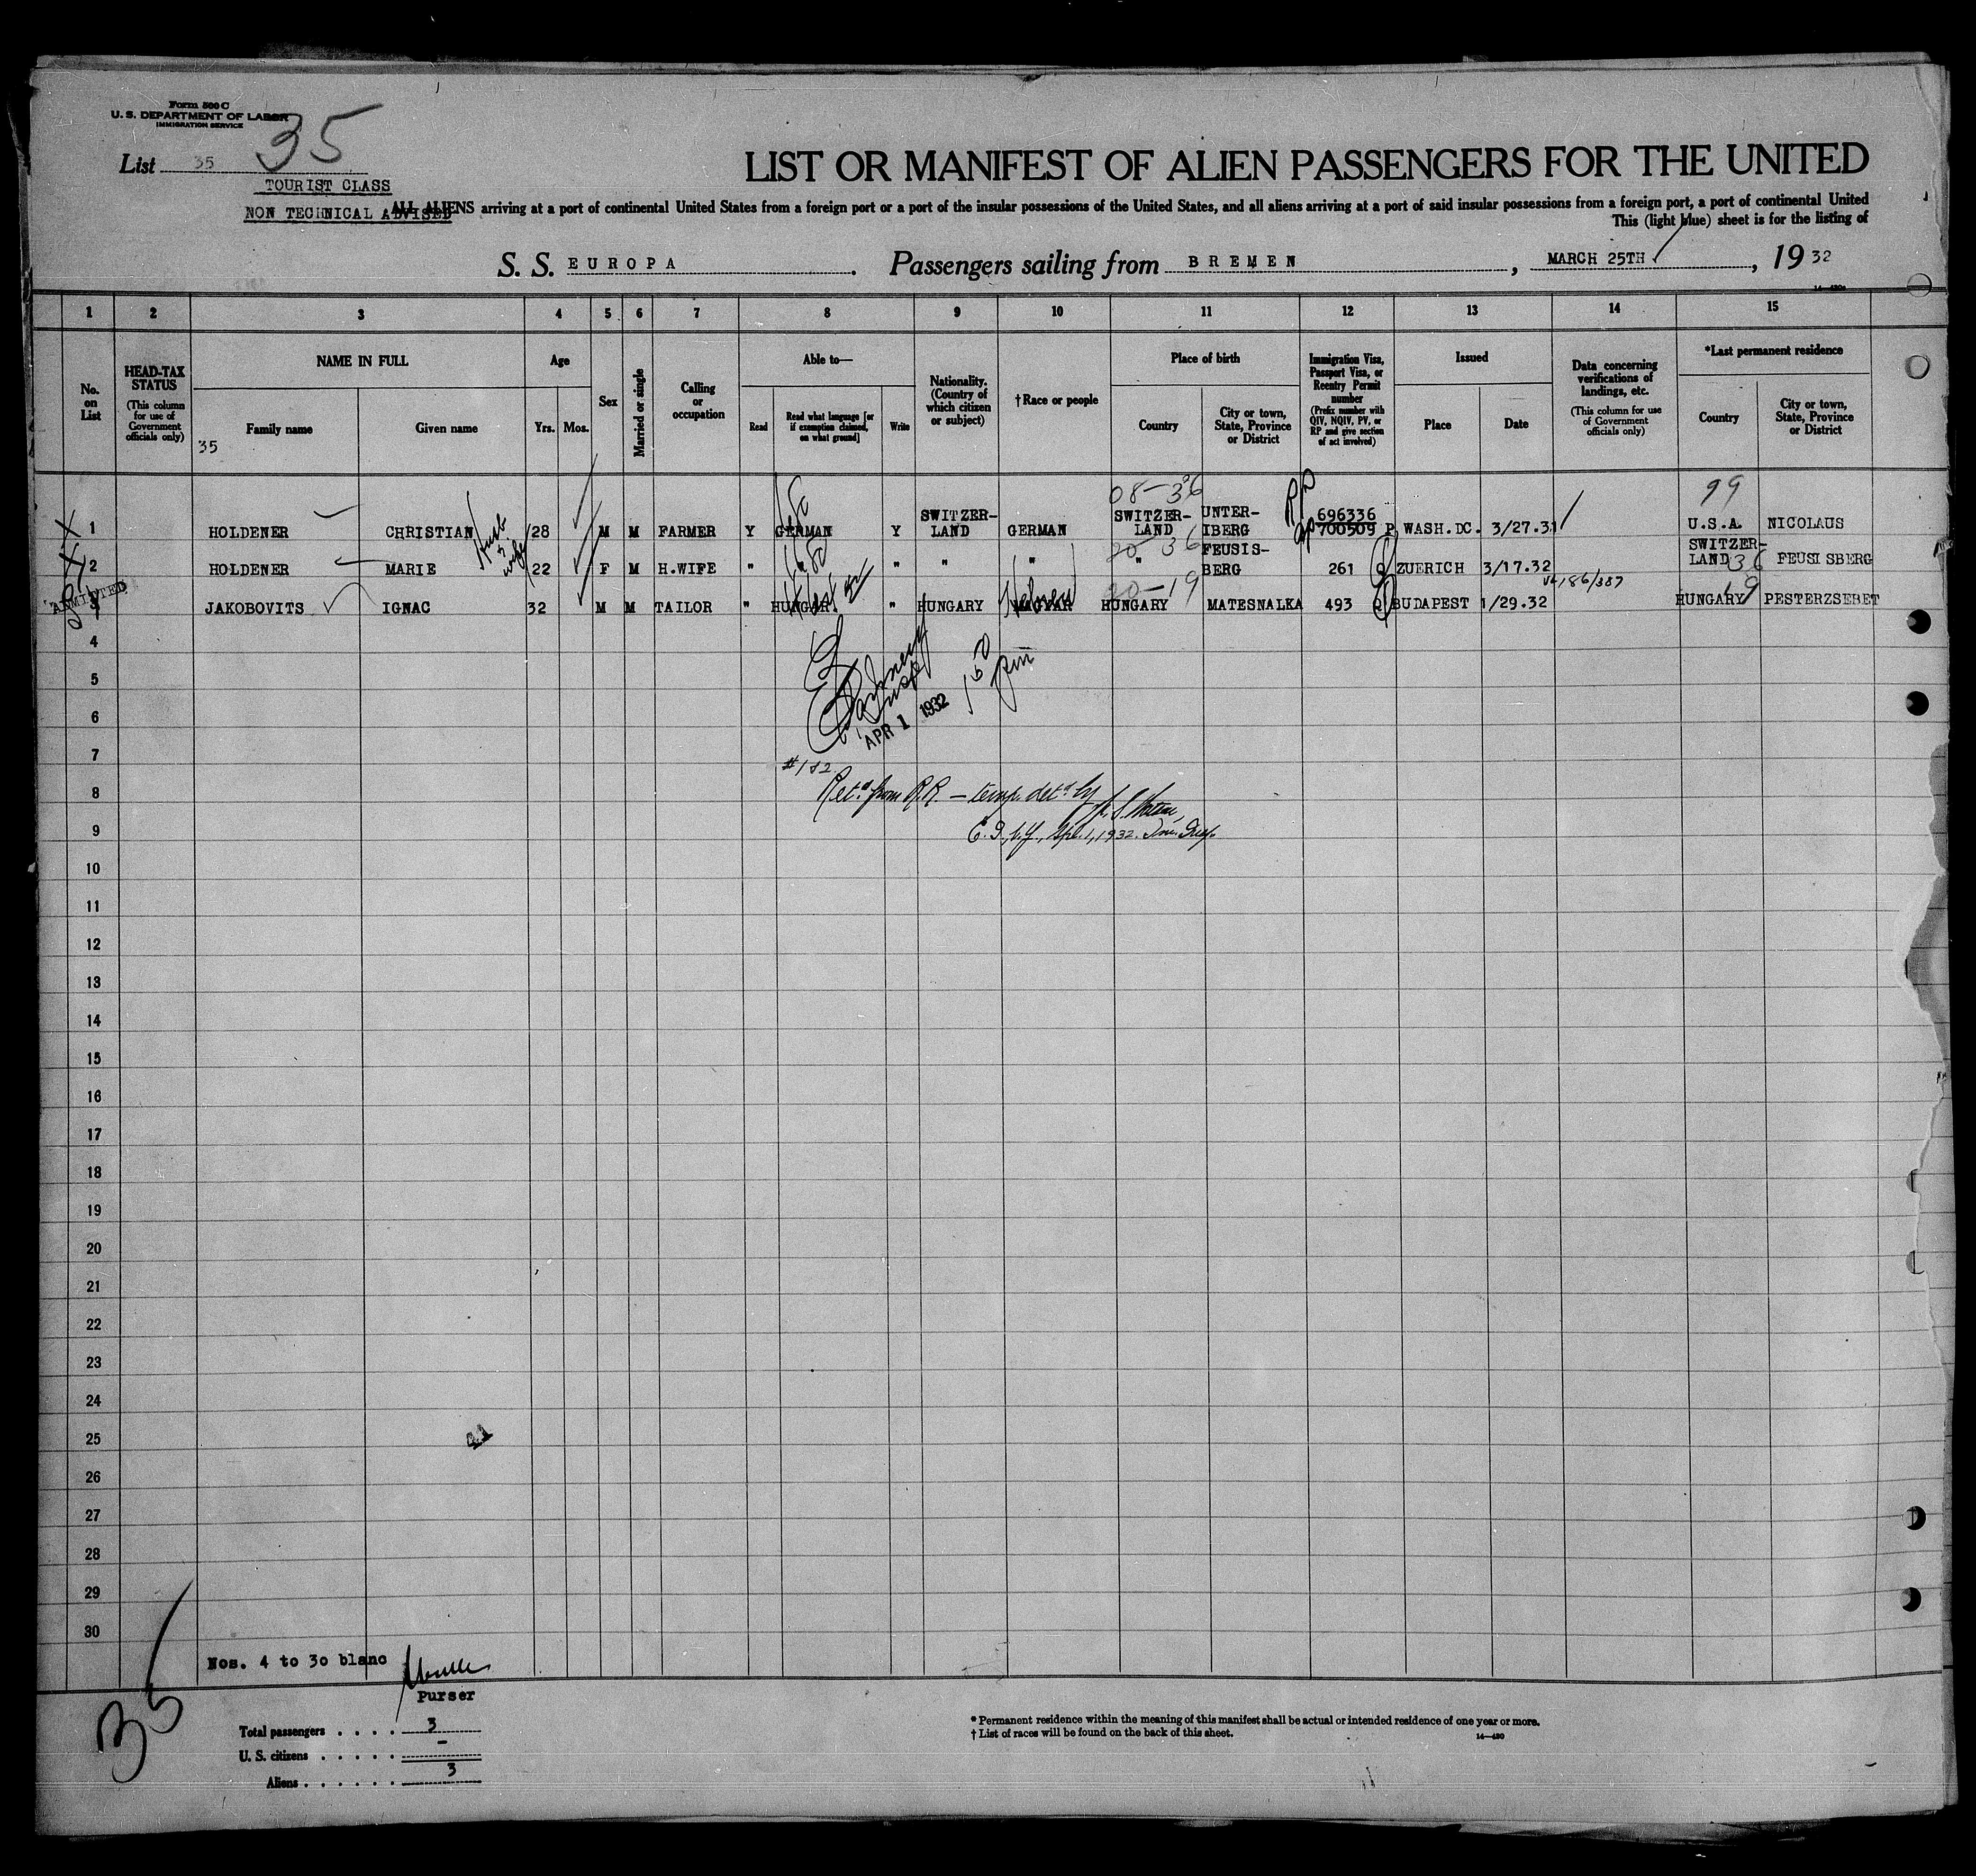 Form 500 C
U. S. DEPARTMENT OF LABOR
IMMIGRATION SERVICE
35
List 35
TOURIST CLASS
NON TECHNICAL ADVISED
LIST OR MANIFEST OF ALIEN PASSENGERS FOR THE UNITED
ALL ALIENS arriving at a port of continental United States from a foreign port or a port of the insular possessions of the United States, and all aliens arriving at a port of said insular possessions from a foreign port, a port of continental United
This (light blue) sheet is for the listing of
S. S. EUROPA . Passengers sailing from BREMEN , MARCH 25TH , 19 32
1 2 3 4 5 6 7 8 9 10 11 12 13 14 15
No. on List
HEAD-TAX STATUS
(This column for use of Government officials only)
NAME IN FULL
Family name
Given name
35
Age
Yrs. Mos.
Sex
Married or single
Calling or occupation
Able to—
Read
Read what language [or if exemption claimed, on what ground]
Write
Nationality. (Country of which citizen or subject)
† Race or people
Place of birth
Country
City or town, State, Province or District
Immigration Visa, Passport Visa, or Reentry Permit number
(Prefix number with QIV, NQIV, PV, or RP and give section of act involved)
Issued
Place
Date
Data concerning verifications of landings, etc.
(This column for use of Government officials only)
*Last permanent residence
Country
City or town, State, Province or District
08-36 99
1 HOLDENER CHRISTIAN 28 M M FARMER Y GERMAN Y SWITZER-LAND GERMAN SWITZER-LAND UNTER-IBERG RP 696336 700509 P WASH.DC. 3/27.31 U.S.A. NICOLAUS
Husb & wife
20-36
2 HOLDENER MARIE 22 F M H.WIFE " " " " " FEUSIS-BERG 261 Q ZUERICH 3/17.32 SWITZER-LAND 36 FEUSISBERG
ADMITTED
20-19 V4186/387 19
3 JAKOBOVITS IGNAC 32 M M TAILOR " HUNGAR. " HUNGARY MAGYAR Hebrew HUNGARY MATESNALKA 493 Q BUDAPEST 1/29.32 HUNGARY PESTERZSEBET
4
5
6
150 pm
APR 1 1932
7
#182
8 Retd from R.R. — temp. detd by
9 E.I., N.Y., Apl. 1, 1932. Imm. Insp.
10
11
12
13
14
15
16
17
18
19
20
21
22
23
24
25
26
27
28
29
30
Nos. 4 to 30 blanc
Purser
35
Total passengers . . . . 3
U. S. citizens . . . . . –
Aliens . . . . . . 3
* Permanent residence within the meaning of this manifest shall be actual or intended residence of one year or more.
† List of races will be found on the back of this sheet.
14—430